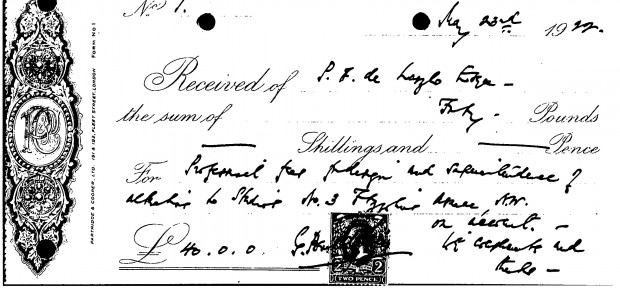 No. 1. May 23rd 1922.
Received of P. F. de Laszlo Esqre —
the sum of Forty — Pounds
— Shillings and — Pence
For Professional fees for design and superintendence of
alterations to Studio No. 3 Fitzjohns Avenue, N.W.
on account. —
£ 40.0.0. G. With compliments and
thanks —
TWO PENCE
2 2
PARTRIDGE & COOPER, LTD. 191 & 192, FLEET STREET, LONDON FORM NO 1